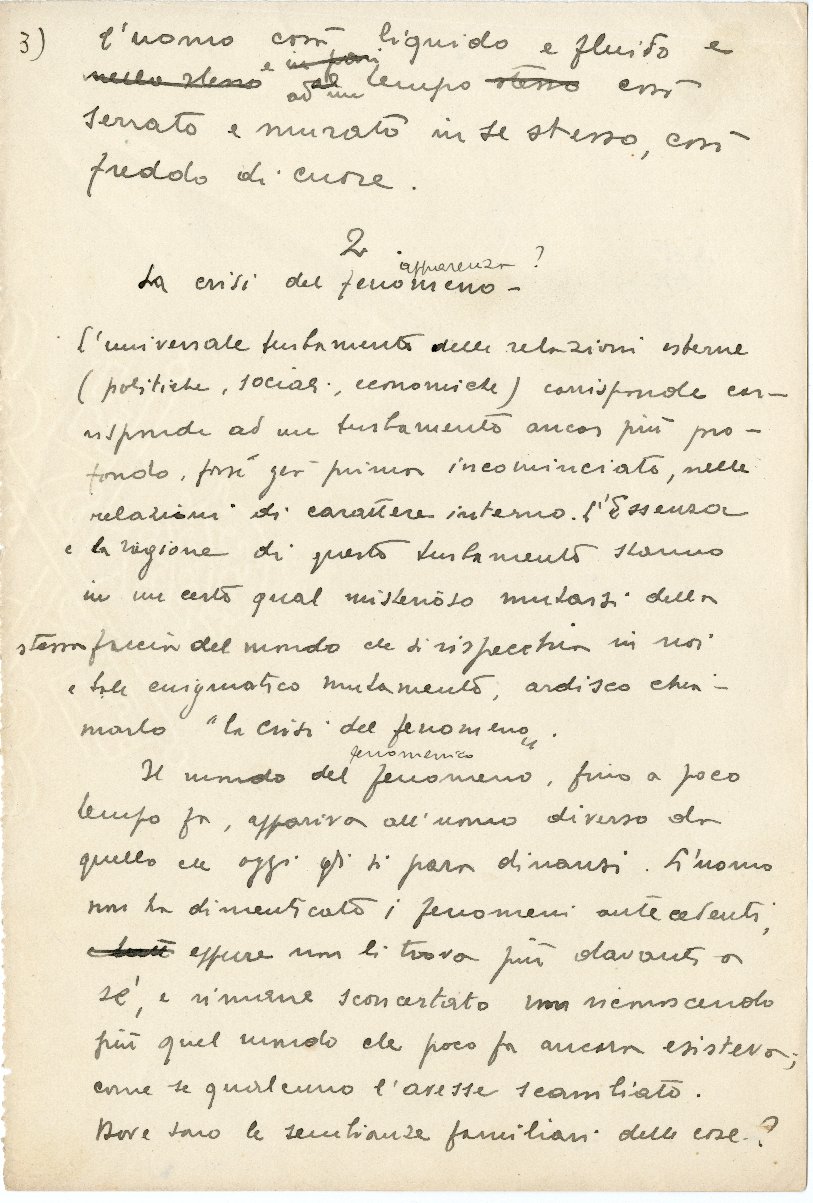 3) l'uomo così liquido e fluido e
~~nello stesso~~ e ~~in pari~~ ad un tempo ~~stesso~~ così
serrato e murato in se stesso, così
freddo di cuore.
2.
apparenza?
La crisi del fenomeno -
L'universale turbamento delle relazioni esterne
(politiche, sociali, economiche) corrisponde cor-
risponde ad un turbamento ancor più pro-
fondo, forse già prima incominciato, nelle
relazioni di carattere interno. L'Essenza
e la ragione di questo turbamento stanno
in un certo qual misterioso mutarsi della
stessa faccia del mondo che si rispecchia in noi
e tale enigmatico mutamento, ardisco chia-
marlo "la crisi del fenomeno".
fenomenico
Il mondo del fenomeno, fino a poco
tempo fa, appariva all'uomo diverso da
quello che oggi gli si para dinanzi. L'uomo
non ha dimenticato i fenomeni antecedenti,
eppure non li trova più davanti a
sé, e rimane sconcertato non riconoscendo
più quel mondo che poco fa ancora esisteva;
come se qualcuno l'avesse scambiato.
Dove sono le sembianze familiari delle cose?